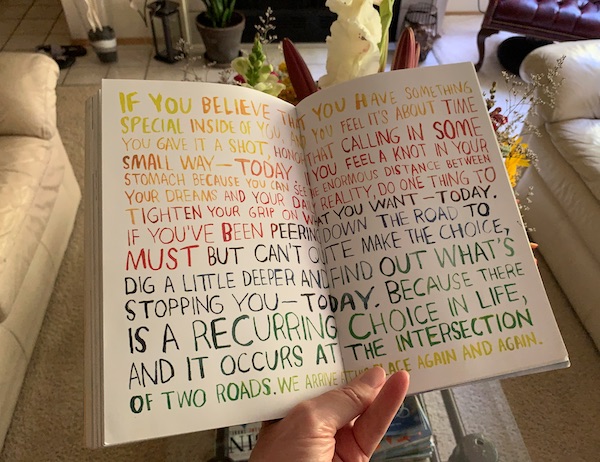 IF YOU BELIEVE THAT YOU HAVE SOMETHING
SPECIAL INSIDE OF YOU, AND YOU FEEL IT'S ABOUT TIME
YOU GAVE IT A SHOT, HONOR THAT CALLING IN SOME
SMALL WAY—TODAY. YOU FEEL A KNOT IN YOUR
STOMACH BECAUSE YOU CAN SEE THE ENORMOUS DISTANCE BETWEEN
YOUR DREAMS AND YOUR DAILY REALITY, DO ONE THING TO
TIGHTEN YOUR GRIP ON WHAT YOU WANT—TODAY.
IF YOU'VE BEEN PEERING DOWN THE ROAD TO
MUST BUT CAN'T QUITE MAKE THE CHOICE,
DIG A LITTLE DEEPER AND FIND OUT WHAT'S
STOPPING YOU—TODAY. BECAUSE THERE
IS A RECURRING CHOICE IN LIFE,
AND IT OCCURS AT THE INTERSECTION
OF TWO ROADS. WE ARRIVE AT THIS PLACE AGAIN AND AGAIN.